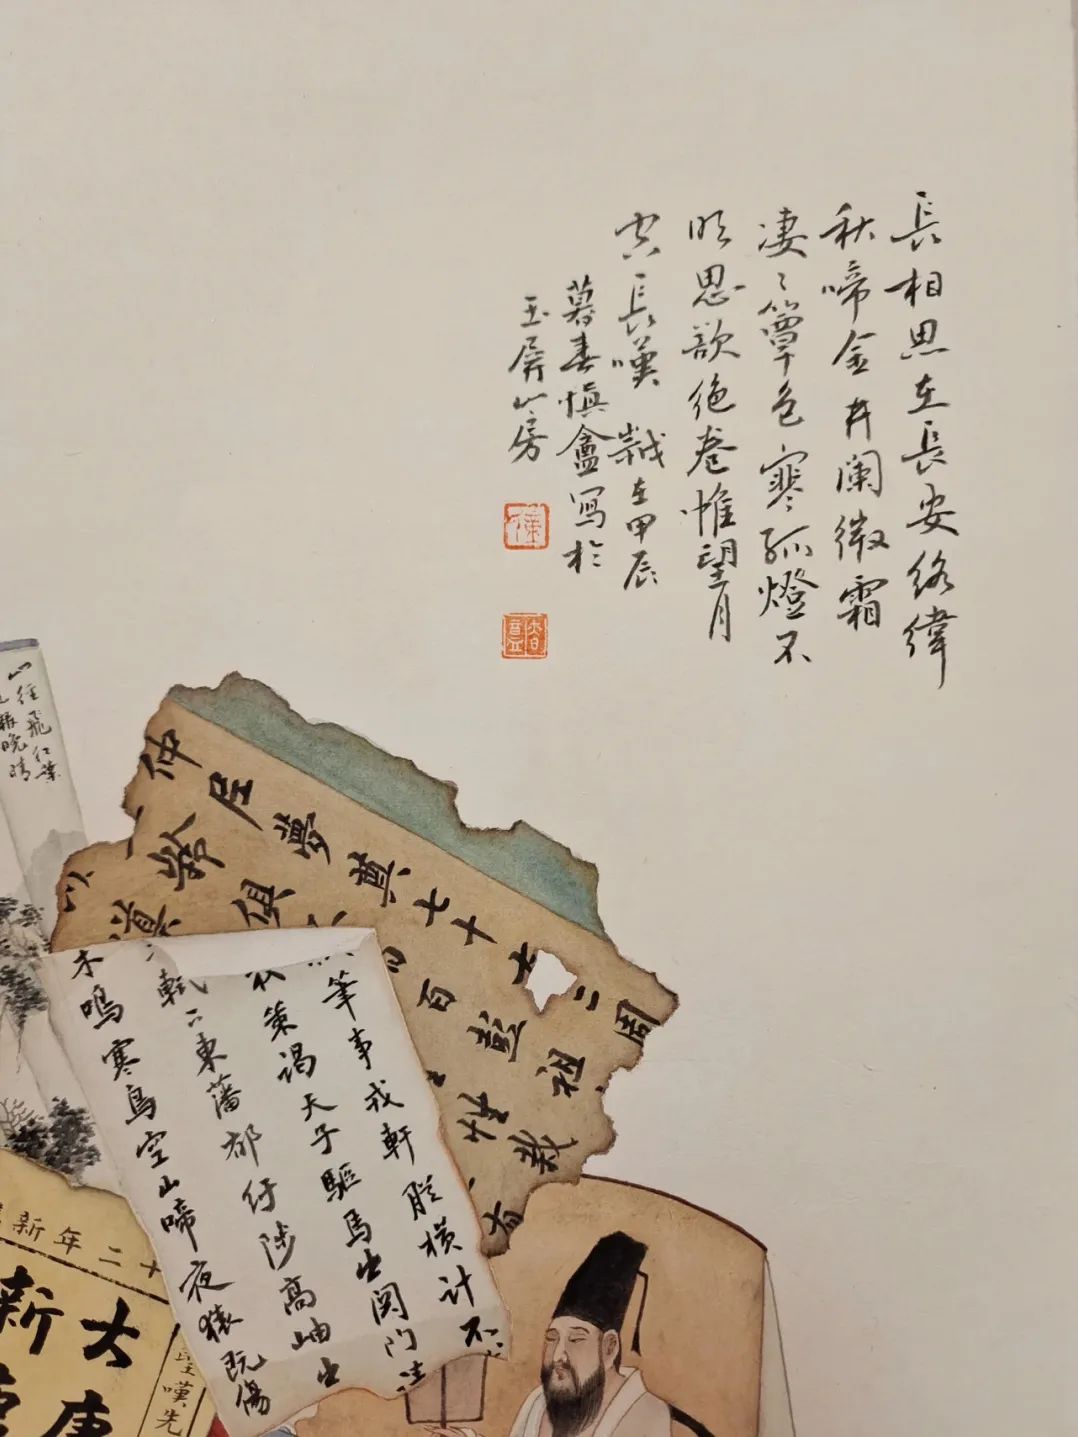 長相思在長安絡緯
秋啼金井闌微霜
凄〻簟色寒孤燈不
明思欲絕卷帷望月
空長嘆 歲在甲辰
暮春慎盦寫於
玉屏山房
山徑飛紅葉
報晚晴
仲尼夢奠七十
二周
祖
百彭
俱
有
筆事戎軒縱橫計不
策謁天子驅馬出関門
軾下東藩郁紆陟高岫出
木鳴寒鳥空山啼夜猿既傷
十二年新
大唐
新
聖嘆先